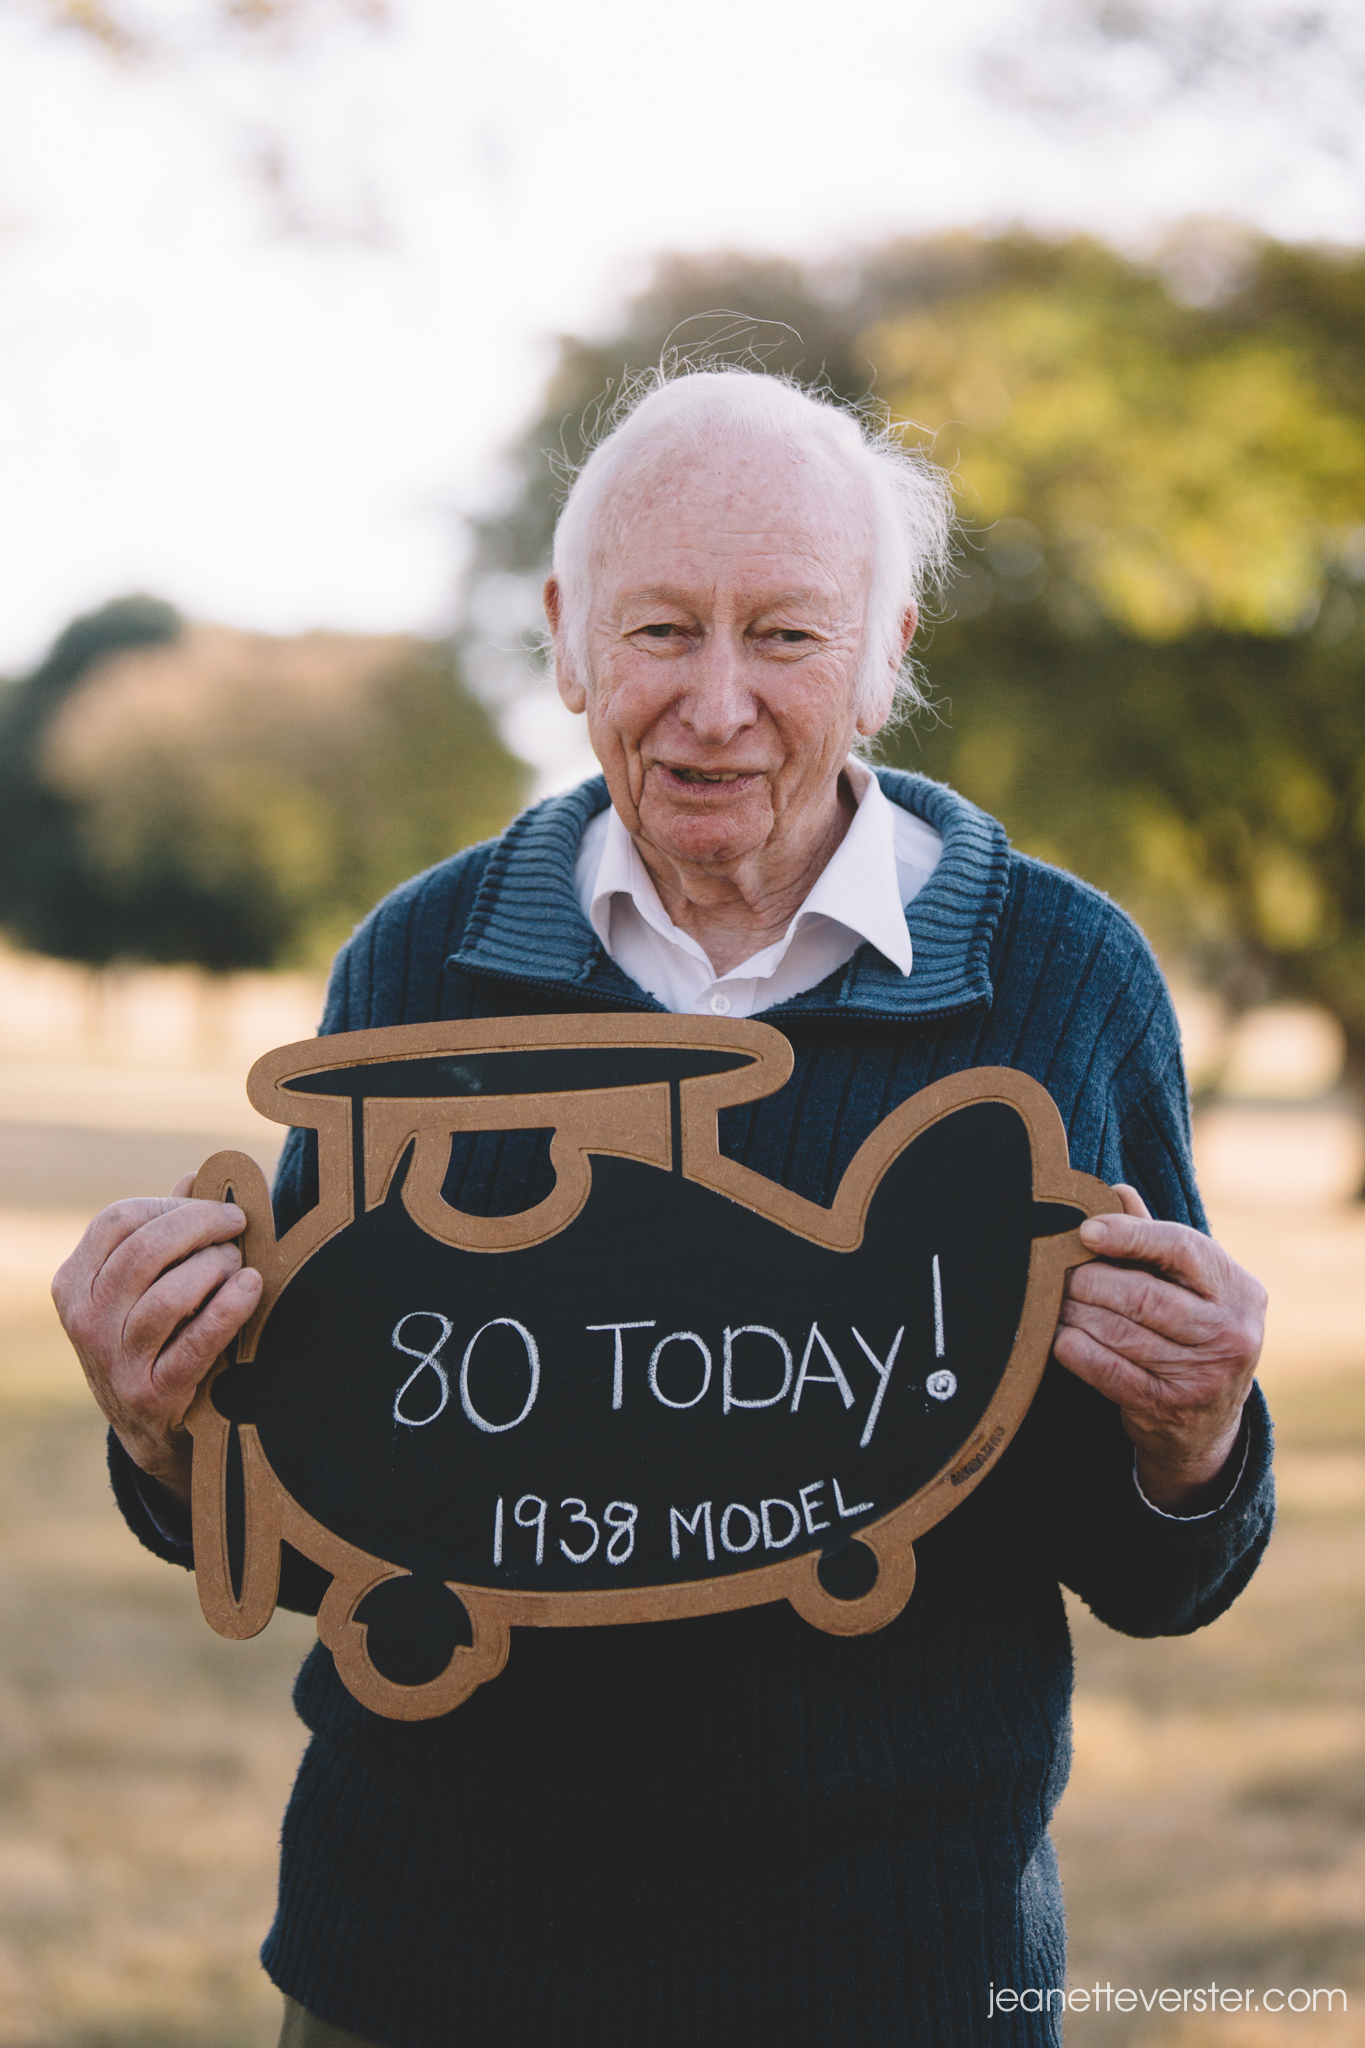 80 TODAY!
1938 MODEL
jeanetteverster.com